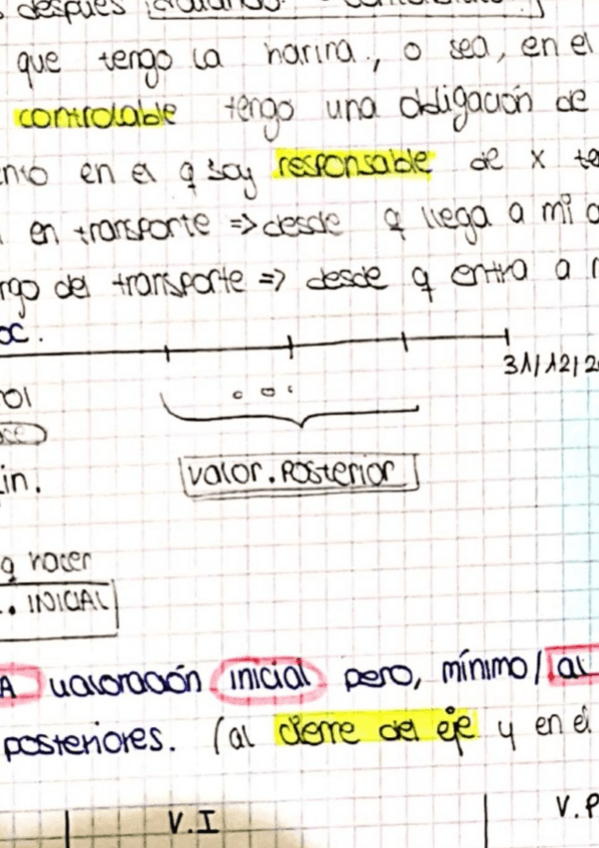 después
que tengo la harina, o sea, en el
controlable tengo una obligación de
en el q soy responsable de x
en transporte => desde q llega a mi
del transporte => desde q entra a
31/12/2
in.
valor. Posterior
q hacer
. INICIAL
A valoración inicial pero, mínimo/ al
posteriores. (al cierre del eje y en el
V.I
V.P